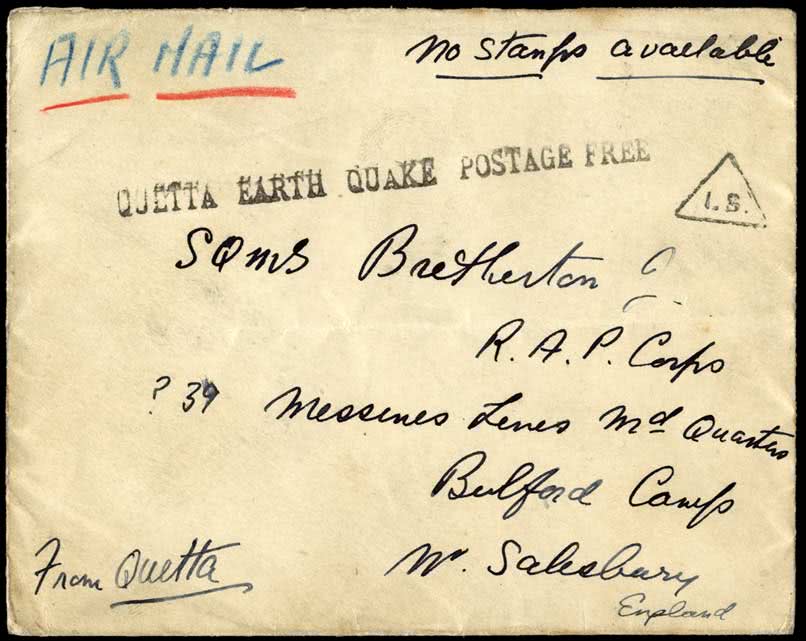 AIR MAIL
No stamps available
QUETTA EARTH QUAKE POSTAGE FREE
I.S.
SQMS Bretherton
R.A.P. Corps
? 39 Messines Lines Md Quarters
Bulford Camp
Nr. Salisbury
England
From Quetta